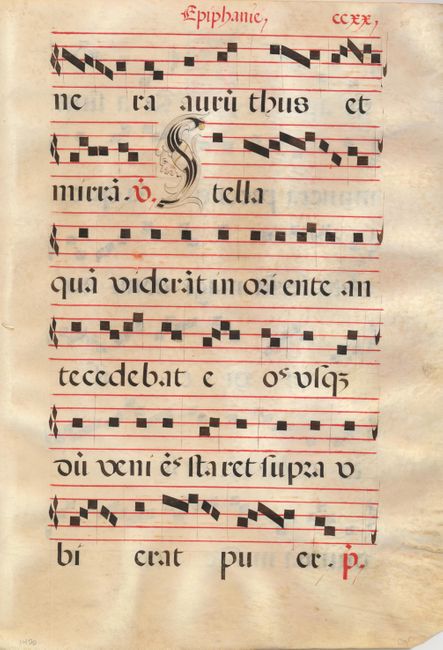 Epiphanie, ccxx,
ne ra aurū thus et
mirrā. v̇. Stella
quā viderāt in ori ente an
tecedebat e oˢ usqꝫ
dū veni ēˢ staret supra v
bi erat pu er. p̄.
1490